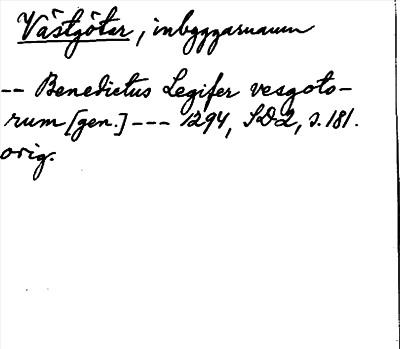 Västgötar, inbyggarnamn
-- Benedictus Legifer vesgoto-
rum [gen.] --- 1294, SD2, s. 181.
orig.